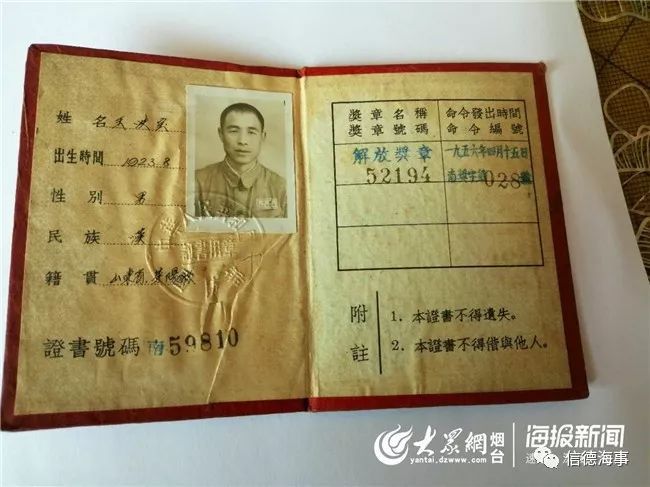 姓名
出生時間 1923.8
性別 男
民族 漢
籍貫 山東省萊陽
證書號碼 南59810
獎章名稱
獎章號碼
命令發出時間
命令編號
解放獎章
52194
一九五六年四月十五日
028號
附註
1. 本證書不得遺失。
2. 本證書不得借與他人。
大眾網 烟台
yantai.dzwww.com
海报新闻
信德海事